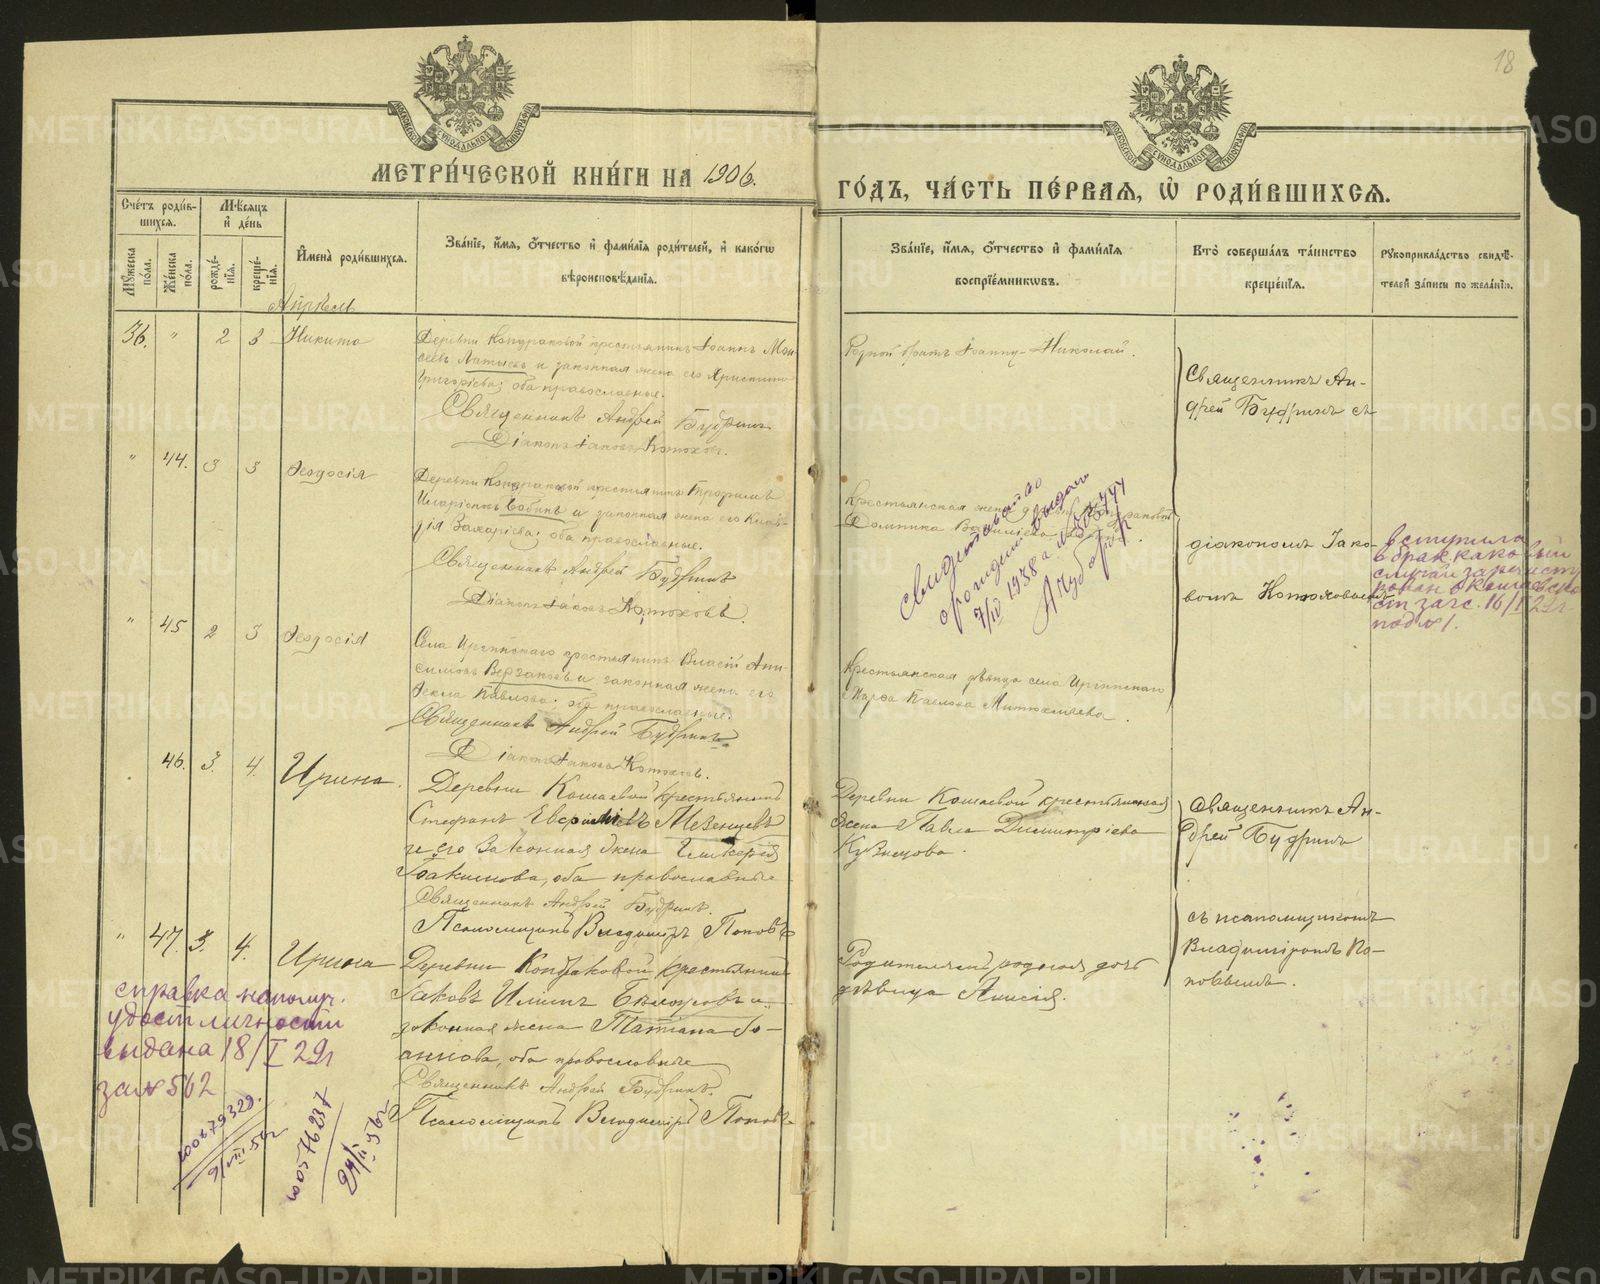 18
МЕТРИ́ЧЕСКОЙ КНИ́ГИ НА 1906.
ГО́ДЪ, ЧА́СТЬ ПЕ́РВАЯ, Ѡ҆ РОДИ́ВШИХСѦ.
Сче́тъ роди́вшихсѧ.
Мѣ́сѧцъ и҆ де́нь
Мꙋ́жеска по́ла.
Же́нска по́ла.
рожде́нїѧ.
креще́нїѧ.
И҆мена̀ роди́вшихсѧ.
Зва́нїе, и҆́мѧ, ѻ҆́тчество и҆ фами́лїѧ роди́телей, и҆ како́гѡ
вѣроисповѣ́данїѧ.
Зва́нїе, и҆́мѧ, ѻ҆́тчество и҆ фами́лїѧ
воспрїе́мникѡвъ.
Кто̀ соверша́лъ та́инство
креще́нїѧ.
Рꙋкоприкла́дство свидѣ́-
телей за́писи по жела́нїю.
Апрѣль
36. " 2 3 Никита
Деревни Кондраковой крестьянинъ Іоаннъ Мои-
сеевъ Латыевъ и законная жена его Христина
Григоріева; оба православные.
Священникъ Андрей Будринъ
Діаконъ Іаковъ Котюховъ.
Родной братъ Іоанну Николай.
Священникъ Ан-
дрей Будринъ съ
" 44. 3 3 Ѳеодосія
Деревни Кондраковой крестьянинъ Трофимъ
Иларіоновъ Бабинъ и законная жена его Клав-
дія Захаріева; оба православные.
Священникъ Андрей Будринъ
Діаконъ Іаковъ Котюховъ.
Крестьянская жена
Домника Василіева
свидетельство
о рождении выдано
7/IV 1938 г.
діакономъ Іако-
вомъ Котюховымъ
вступила
в брак каковый
случай зарегист
рован в
ст загс. 16/I 29г
под № 1.
" 45 2 3 Ѳеодосія
Села Иргинскаго крестьянинъ Власій Ани-
симовъ и законная жена его
Ѳекла Павлова; оба православные.
Священникъ Андрей Будринъ
Діаконъ Іаковъ Котюховъ.
Крестьянская дѣвица села Иргинскаго
Марѳа Павлова
46. 3. 4. Ирина.
Деревни Кошаевой крестьянинъ
Стефанъ Мезенцевъ
и его законная жена Гликерія
Іоакимова, оба православные
Священникъ Андрей Будринъ.
Псаломщикъ Владиміръ Поповъ
Деревни Кошаевой крестьянская
жена Павла Димитріева
Кузнецова.
Священникъ Ан-
дрей Будринъ
съ псаломщикомъ
Владиміромъ По-
повымъ.
" 47. 3. 4. Ирина
Деревни Кондраковой крестьянинъ
Іаковъ Илiинъ и
законная жена Татіана Іо-
аннова, оба православные
Священникъ Андрей Будринъ.
Псаломщикъ Владиміръ Поповъ
Родителямъ родная дочь
дѣвица Анисія.
справка на получ.
удост личности
выдана 18/I 29г
за № 562
9/VIII 56г
METRIKI.GASO-URAL.RU